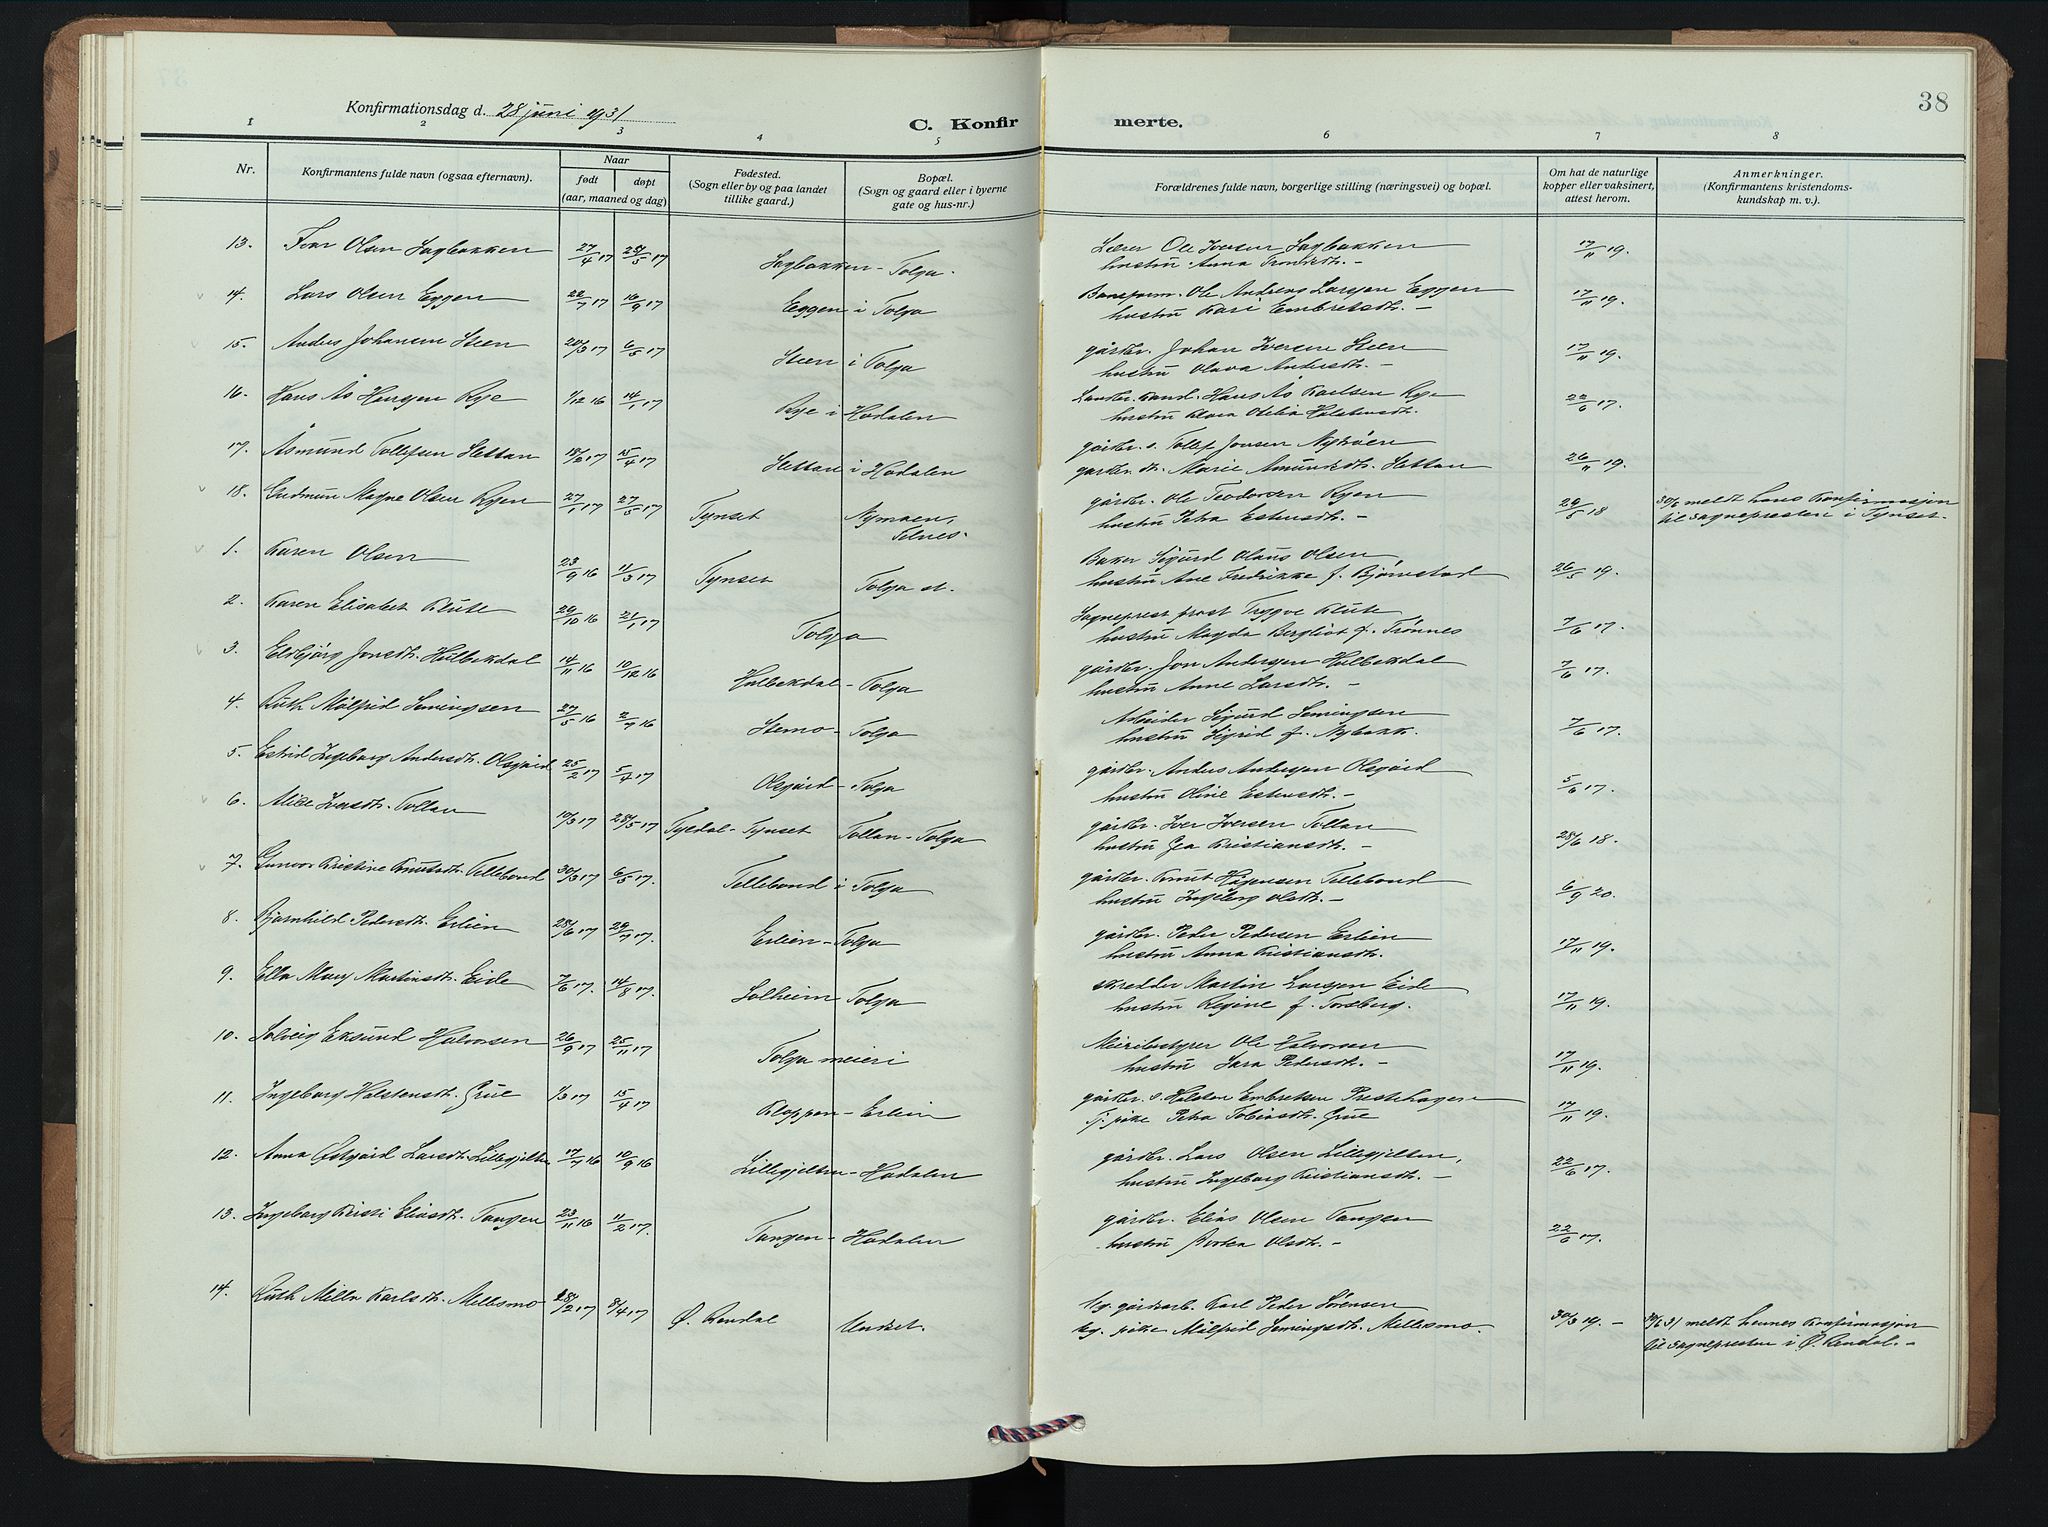 38
Konfirmationsdag d. 28 juni 1931
C. Konfirmerte.
1 2 3 4 5 6 7 8
Nr.
Konfirmantens fulde navn (ogsaa efternavn).
Naar
født døpt
(aar, maaned og dag)
Fødested.
(Sogn eller by og paa landet
tillike gaard.)
Bopæl.
(Sogn og gaard eller i byerne
gate og hus-nr.)
Forældrenes fulde navn, borgerlige stilling (næringsvei) og bopæl.
Om hat de naturlige
kopper eller vaksinert,
attest herom.
Anmerkninger.
(Konfirmantens kristendoms-
kundskap m. v.).
13. Ivar Olsen Sagbakken 27/4 17 28/5 17 Sagbakken - Tolga. Lærer Ole Iversen Sagbakken 17/11 19.
hustru Anna Trondsdt. —
14. Lars Olsen Eggen 22/7 17 16/9 17 Eggen i Tolga Baneform. Ole Andreas Larsen Eggen 17/11 19.
hustru Kari Embretsdt. —
15. Anders Johansen Steen 20/3 17 6/5 17 Steen i Tolga gårdbr. Johan Iversen Steen 17/11 19.
hustru Olava Andersdt. —
16. Hans Ås Hansen Rye 1/12 16 14/1 17 Rye i Hodalen Landbr. kand. Hans Ås Karlsen Rye 22/6 17.
hustru Klara Otilia Holstensdt.
17. Åsmund Tollefsen Stettan 18/2 17 15/4 17 Stettan i Hodalen gårdbr. s. Tollef Jonsen Nystrøen 26/11 19.
gårdbr. dt. Marie Amundsdt. Stettan
18. Gudmun Magne Olsen Ryen 27/1 17 27/5 17 Tynset Nymoen, gårdbr. Ole Teodorsen Ryen 29/5 18 30/6 meldt hans Konfirmasjon
Telnes. hustru Petra Estensdt. — til sognepresten i Tynset.
1. Karen Olsen 23/9 16 11/3 17 Tynset Tolga st. Baker Sigurd Olaus Olsen, 26/5 19.
hustru Ane Fredrikke f. Bjørnstad
2. Karen Elisabet Klüte 29/10 16 21/1 17 Tolga Sogneprest prost Trygve Klüte 7/6 17.
hustru Magda Bergliot f. Trønnes
3. Eldbjørg Jonsdt. Hulbekdal 14/11 16 10/12 16 Hulbekdal - Tolga gårdbr. Jon Andersen Hulbekdal 7/6 17.
hustru Anne Larsdt. —
4. Ruth Målfrid Semingsen 27/5 16 2/7 16 Stemo - Tolga Arbeider Sigurd Semingsen 7/6 17.
hustru Sigrid f. Nybakk.
5. Estrid Ingeborg Andersdt. Olsgård 25/2 17 5/4 17 Olsgård - Tolga gårdbr. Anders Andersen Olsgård 5/6 17.
hustru Oline Estensdt. —
6. Alide Ivarsdt. Tollan 10/3 17 28/5 17 Tyldal - Tynset Tollan - Tolga gårdbr. Iver Iversen Tollan 28/6 18.
hustru Gea Kristiansdt. —
7. Gunvor Kristine Knutsdt. Tellebond 30/3 17 6/5 17. Tellebond i Tolga gårdbr. Knut Hågensen Tellebond 6/9 20.
hustru Ingeborg Olsdt. —
8. Bjarnhild Pedersdt. Erlien 28/6 17 29/7 17. Erlien - Tolga gårdbr. Peder Pedersen Erlien 17/11 19.
hustru Anna Kristiansdt.
9. Ella Mary Martinsdt. Eide 7/6 17. 14/8 17. Solheim Tolga skredder Martin Larsen Eide 17/11 19.
hustru Regine f. Torsberg.
10. Solveig Eksund Halvorsen 26/9 17 25/11 17 Tolga meieri Meieribestyrer Ole Halvorsen 17/11 19.
hustru Sara Pedersdt. —
11. Ingeborg Holstensdt. Grue 1/3 17 15/4 17 Kloppen - Erlien gårdbr. s. Holsten Embretsen Prestehagen 17/11 19.
Tj. pike Petra Tobiasdt. Grue
12. Anna Østgård Larsdt. Lillegjelten 17/7 16 10/9 16 Lillegjelten - Hodalen gårdbr. Lars Olsen Lillegjelten, 22/6 17.
hustru Ingeborg Kristiansdt. —
13. Ingeborg Kirsti Eliasdt. Tangen 23/11 16 11/2 17. Tangen - Hodalen gårdbr. Elias Olsen Tangen 22/6 17.
hustru Dortea Olsdt. —
14. Ruth Milla Karlsdt. Mellesmo 28/2 17 8/4 17 Ø. Rendal Undset. Ug. gårdsarb. Karl Peder Sørensen 30/3 19. — 30/6 31 meldt hennes Konfirmasjon
ug. pike Målfrid Semingsdt. Mellesmo. til sognepresten i Ø. Rendal. —